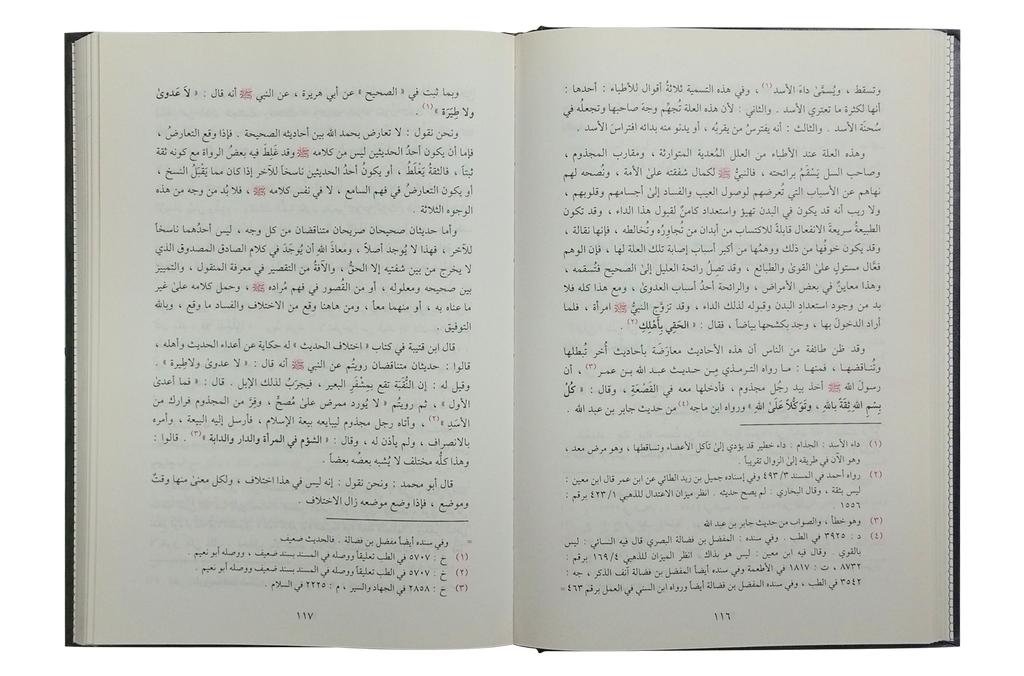 وتسقط ، ويُسمَّىٰ داءَ الأسد(١) ، وفي هذه التسمية ثلاثةُ أقوال للأطباء : أحدها :
أنها لكثرة ما تعتري الأسد . والثاني : لأن هذه العلة تُجهِّم وجهَ صاحبها وتجعلُه في
سُحنَة الأسد . والثالث : أنه يفترسُ من يقربُه ، أو يدنو منه بدائه افتراسَ الأسد .
وهذه العلة عند الأطباء من العلل المُعدية المتوارثة ، ومقارب المجذوم ،
وصاحب السل يَسْقَمُ برائحته ، فالنبيُّ ﷺ لكمال شفقته علىٰ الأمة ، ونُصحه لهم
نهاهم عن الأسباب التي تُعرضهم لوصول العيب والفساد إلىٰ أجسامهم وقلوبهم ،
ولا ريب أنه قد يكون في البدن تهيؤ واستعداد كامنٌ لقبول هذا الداء ، وقد تكون
الطبيعةُ سريعةَ الانفعال قابلةً للاكتساب من أبدان من تُجاوِرُه وتُخالطه ، فإنها نقالة ،
وقد يكون خوفُها من ذلك ووهمُها من أكبر أسباب إصابة تلك العلة لها ، فإن الوهم
فعَّال مستولٍ علىٰ القوىٰ والطبائع ، وقد تصِلُ رائحة العليل إلىٰ الصحيح فتُسقمه ،
وهذا معاينٌ في بعض الأمراض ، والرائحة أحدُ أسباب العدوىٰ ، ومع هذا كله فلا
بد من وجود استعدادِ البدن وقبوله لذلك الداء ، وقد تزوَّج النبيُّ ﷺ امرأة ، فلما
أراد الدخولَ بها ، وجد بكشحها بياضاً ، فقال : « الحَقِي بِأَهْلِكِ »(٢) .
وقد ظن طائفة من الناس أن هذه الأحاديث معارَضَة بأحاديثَ أُخر تُبطلها
وتُناقضها ، فمنها : مـا رواه الترمـذي مِـن حـديث عبـد الله بـن عمـر(٣) ، أن
رسولَ الله ﷺ أخذ بيد رجُل مجذوم ، فأدخلها معه في القَصْعَةِ ، وقال : « كُلْ
بِسْمِ اللهِ ثِقَةً باللهِ ، وتَوَكُّلاً عَلَىٰ اللهِ » ورواه ابن ماجه(٤) من حديث جابر بن عبد الله .
(١) داء الأسد : الجذام : داء خطير قد يؤدي إلىٰ تآكل الأعضاء وتساقطها ، وهو مرض معد ،
وهو الآن في طريقه إلىٰ الزوال تقريباً .
(٢) رواه أحمد في المسند ٣/ ٤٩٣ وفي إسناده جميل بن زيد الطائي عن ابن عمر قال ابن معين :
ليس بثقة ، وقال البخاري : لم يصح حديثه . انظر ميزان الاعتدال للذهبي ١/ ٤٢٣ برقم :
١٥٥٦
(٣) وهو خطأ ، والصواب من حديث جابر بن عبد الله
(٤) د : ٣٩٢٥ في الطب . وفي سنده : المفضل بن فضالة البصري قال فيه النسائي : ليس
بالقوي . وقال فيه ابن معين : ليس هو بذاك . انظر الميزان للذهبي ٤/ ١٦٩ برقم :
٨٧٣٢ ، ت : ١٨١٧ في الأطعمة وفي سنده أيضاً المفضل بن فضالة آنف الذكر ، جه :
٣٥٤٢ في الطب ، وفي سنده المفضل بن فضالة أيضاً ورواه ابن السني في العمل برقم ٤٦٣ =
١١٦
وبما ثبت في « الصحيح » عن أبي هريرة ، عن النبي ﷺ أنه قال : « لاَ عدوىٰ
ولا طِيَرَة »(١) .
ونحن نقول : لا تعارض بحمد الله بين أحاديثه الصحيحة . فإذا وقع التعارضُ ،
فإما أن يكون أحدُ الحديثين ليس من كلامه ﷺ وقد غَلِطَ فيه بعضُ الرواة مع كونه ثقة
ثبتاً ، فالثقةُ يَغْلَطُ ، أو يكونُ أحدُ الحديثين ناسخاً للآخر إذا كان مما يَقْبَلُ النسخ ،
أو يكون التعارضُ في فهم السامع ، لا في نفس كلامه ﷺ ، فلا بُد من وجه من هذه
الوجوه الثلاثة .
وأما حديثان صحيحان صريحان متناقضان من كل وجه ، ليس أحدُهما ناسخاً
للآخر ، فهذا لا يُوجد أصلاً ، ومعاذَ اللهِ أن يُوجَدَ في كلام الصادق المصدوق الذي
لا يخرج من بين شفتيه إلا الحقُّ ، والآفةُ من التقصير في معرفة المنقول ، والتمييز
بين صحيحه ومعلوله ، أو من القُصور في فهم مُراده ﷺ ، وحمل كلامه علىٰ غير
ما عناه به ، أو منهما معاً ، ومن هاهنا وقع من الاختلاف والفساد ما وقع ، وبالله
التوفيق .
قال ابن قتيبة في كتاب « اختلاف الحديث » له حكاية عن أعداء الحديث وأهله ،
قالوا : حديثان متناقضان رويتُم عن النبي ﷺ أنه قال : « لا عدوىٰ ولاطِيرة » .
وقيل له : إن النُّقْبَة تقع بِمِشْفَرِ البعير ، فيجرَبُ لذلك الإبل . قال : « فما أعدىٰ
الأول » ، ثم رويتُم « لا يُورد ممرض علىٰ مُصِحٍّ ، وفِرَّ من المجذوم فرارك من
الأسَدِ »(٢) ، وأتاه رجل مجذوم ليبايعه بيعة الإسلام ، فأرسل إليه البيعة ، وأمره
بالانصراف ، ولم يأذن له ، وقال : « الشؤم في المرأة والدار والدابة »(٣) . قالوا :
وهذا كلُّه مختلف لا يُشبه بعضُه بعضاً .
قال أبو محمد : ونحن نقول : إنه ليس في هذا اختلاف ، ولكل معنىٰ منها وقتٌ
وموضع ، فإذا وضع موضعه زال الاختلاف .
= وفي سنده أيضاً مفضل بن فضالة . فالحديث ضعيف
(١) خ : ٥٧٠٧ في الطب تعليقاً ووصله في المسند بسند ضعيف ، ووصله أبو نعيم .
(٢) خ : ٥٧٠٧ في الطب تعليقاً ووصله في المسند بسند ضعيف ، ووصله أبو نعيم .
(٣) خ : ٢٨٥٨ في الجهاد والسير ، م : ٢٢٢٥ في السلام .
١١٧